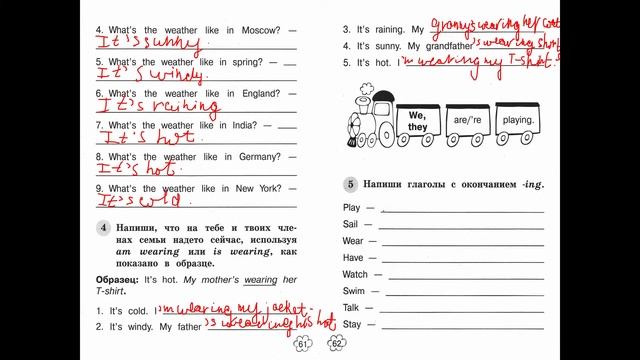 4. What's the weather like in Moscow? —
It's sunny.
5. What's the weather like in spring? —
It's windy.
6. What's the weather like in England? —
It's raining
7. What's the weather like in India? —
It's hot
8. What's the weather like in Germany? —
It's hot.
9. What's the weather like in New York? —
It's cold.
4 Напиши, что на тебе и твоих чле-
нах семьи надето сейчас, используя
am wearing или is wearing, как
показано в образце.
Образец: It's hot. My mother's wearing her
T-shirt.
1. It's cold. I'm wearing my jacket.
2. It's windy. My father 's wearing his hat
61
3. It's raining. My granny's wearing her coat
4. It's sunny. My grandfather 's wearing shorts
5. It's hot. I'm wearing my T-shirt.
We,
they
are/'re
playing.
5 Напиши глаголы с окончанием -ing.
Play —
Sail —
Wear —
Have —
Watch —
Swim —
Talk —
Stay —
62